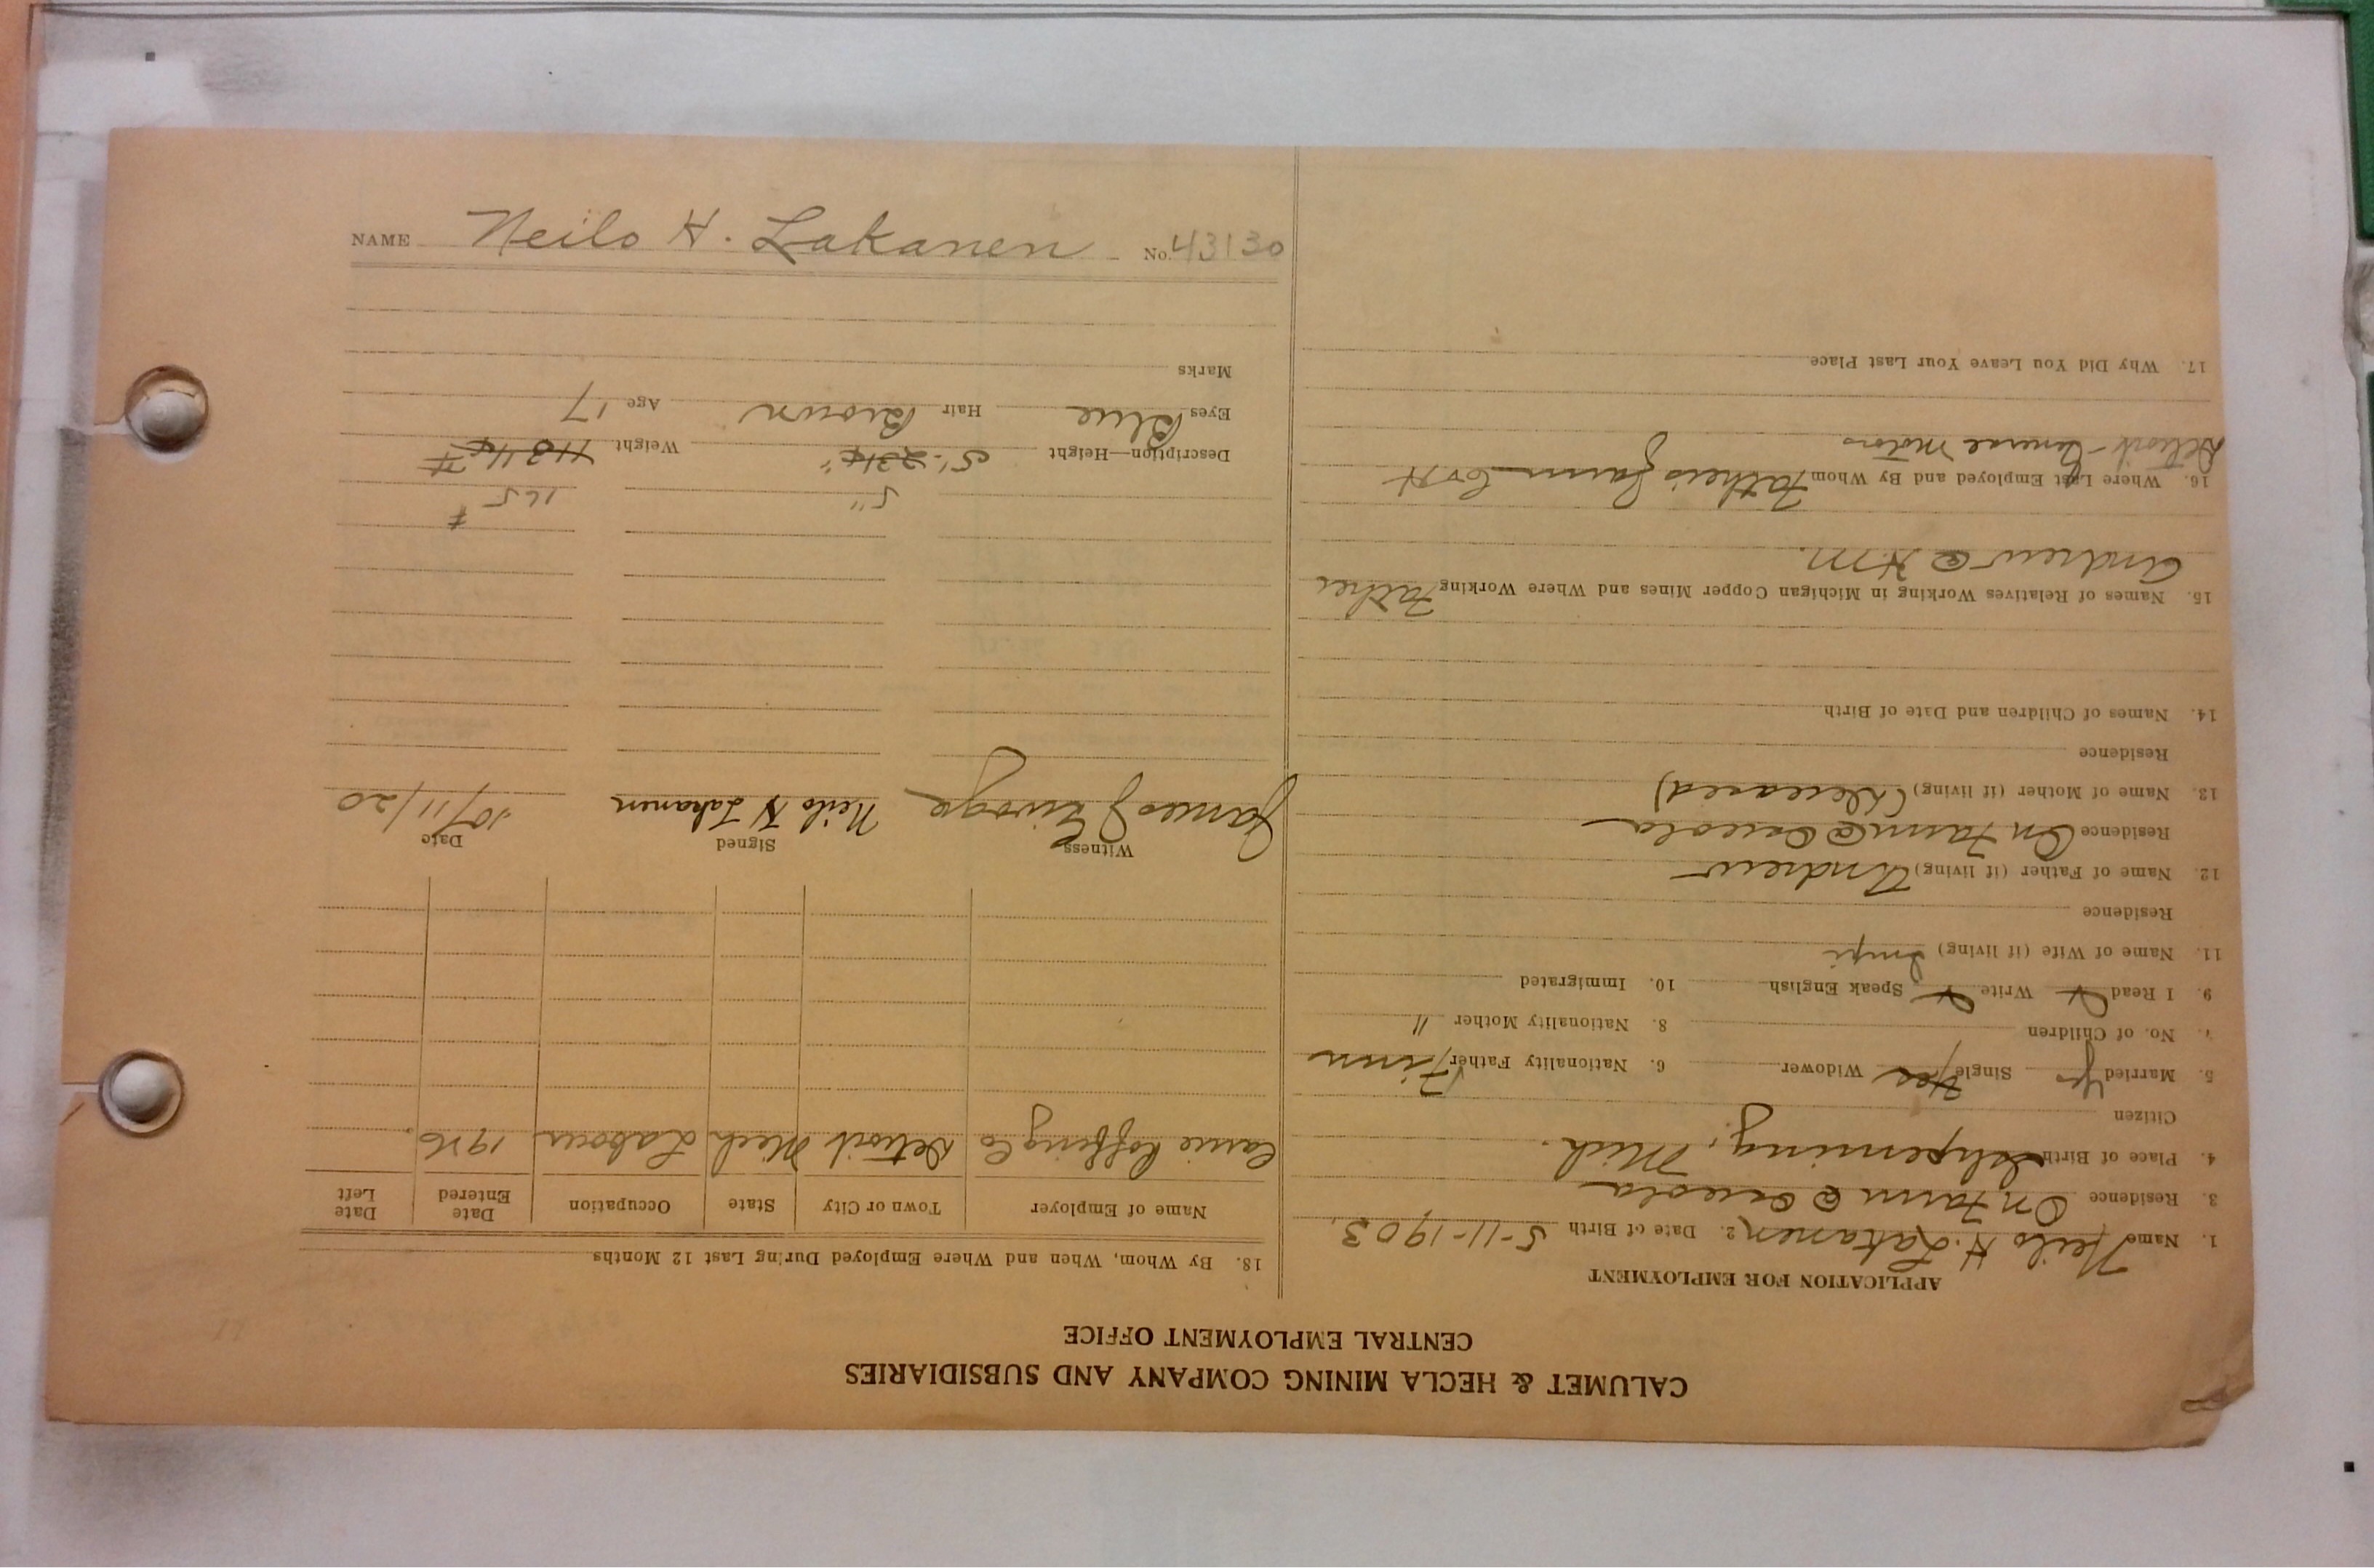 CALUMET & HECLA MINING COMPANY AND SUBSIDIARIES
CENTRAL EMPLOYMENT OFFICE
APPLICATION FOR EMPLOYMENT
1. Name Neilo H. Lakanen 2. Date of Birth 5-11-1903.
3. Residence On Farm @ Osceola
4. Place of Birth Ishpeming, Mich.
Citizen
5. Married Yes Single Yes Widower 6. Nationality Father Finn
7. No. of Children 8. Nationality Mother "
9. I Read Write Speak English 10. Immigrated
11. Name of Wife (if living) Impi
Residence
12. Name of Father (if living) Andrew
Residence On Farm @ Osceola
13. Name of Mother (if living) (Deceased)
Residence
14. Names of Children and Date of Birth
15. Names of Relatives Working in Michigan Copper Mines and Where Working Father
Andrew @ H.M.
16. Where Last Employed and By Whom Father's Farm
Detroit - General Motors
17. Why Did You Leave Your Last Place
18. By Whom, When and Where Employed During Last 12 Months
Name of Employer Town or City State Occupation Date Entered Date Left
Detroit Mich Labour 1926
Witness Signed Date
James J Neilo H Lakanen 10/11/20
165 #
5"
Description—Height 5'- Weight
Eyes Blue Hair Brown Age 17
Marks
NAME Neilo H. Lakanen No. 43130